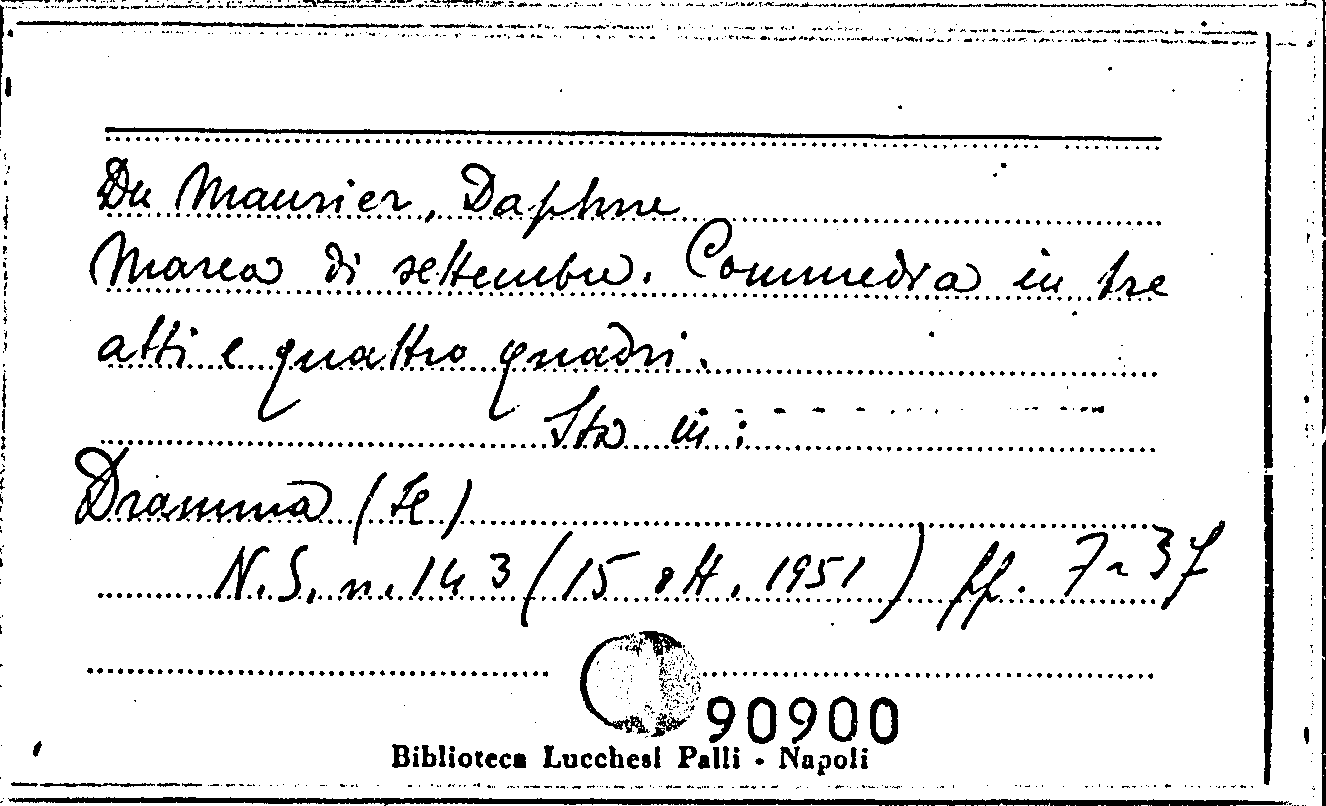 Du Maurier, Daphne
Marea di settembre. Commedia in tre
atti e quattro quadri.
Sta in:
Dramma (Il)
N.S. n. 143 (15 ott. 1951) pp. 7-37
90900
Biblioteca Lucchesi Palli - Napoli